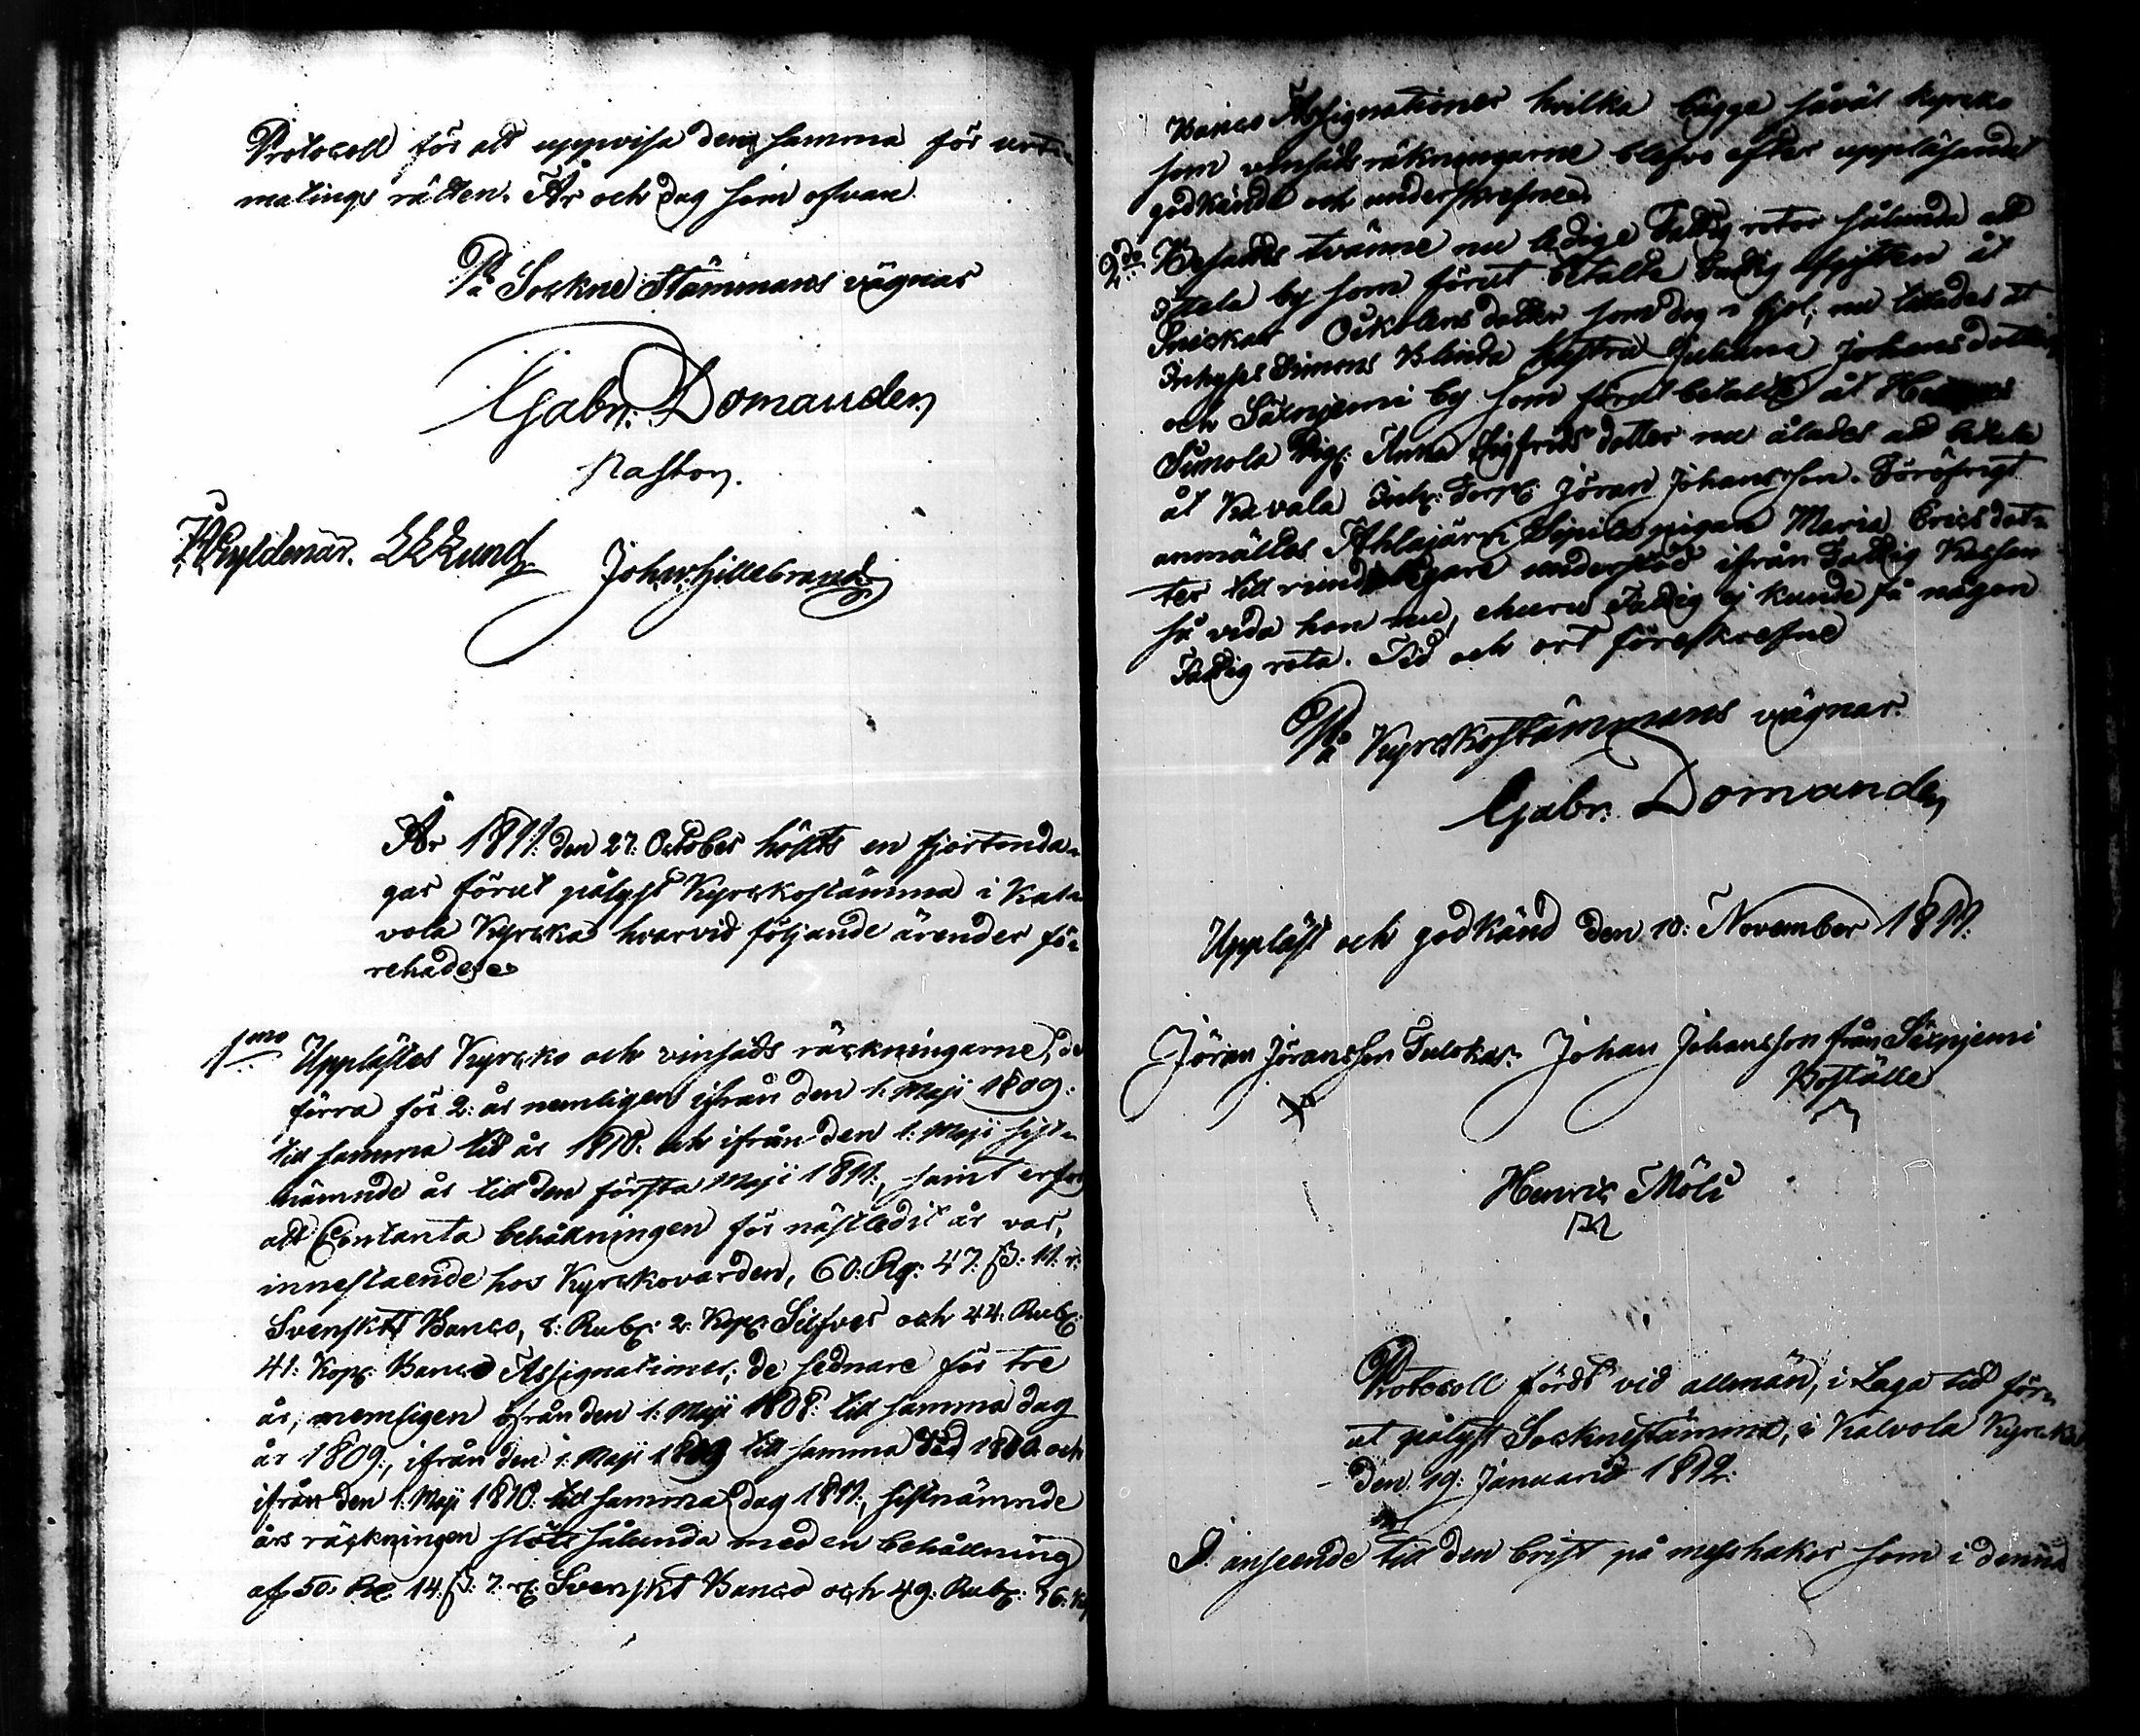 Protocoll för att uppvisa den samma för
matings rätten. År och dag som ofvan.
På Sockne Stämmans vägnar
Gabr: Domander
Pastor.
Gyldenär. Eklund. Joh: Hillebrand
År 1811. den 27. October hölts en fjortonda-
gar förut pålyst Kyrckostämma i Kal-
vola Kyrcka hvarvid följande ärender fö-
rehades
1mo Upplästes Kyrcko och vinsäds räckningarne, de
förra för 2: år nemligen ifrån den 1. Maji 1809:
till samma tid år 1810. och ifrån den 1: Maji sist-
nämnde år till den första Maji 1811., samt
att Contanta behållningen för nästledit år var,
innestaende hos Kyrckovärden, 60: Rg: 47: ß: 11. r:
Svenskt Banco, 8: Rub: 2: Kop: Silfver och 44: Rub:
41: Kop: Banco Assignationer; de sednare för tre
år, nemligen ifrån den 1: Maji 1808: till samma dag
år 1809:, ifrån den 1: Maji 1809 till samma tid 1810. och
ifrån den 1: Maji 1810: till samma dag 1811., sistnämnde
års räckningen slöts sålunda med en behållning
af 50: 14: ß: 7: r: Svenskt Banco och 49: Rub: 76:
Banco Assignationer hvilka bägge såväl kyrcko
som vinsäds räkningarne blefvo efter uppläsandet
godkände och underskrefne.
2do Befanns tvänne nu ledige Fattig rotor sålunda att
Ittala by som förut betalte Fattig afgiften åt
dotter som dog i fjol; nu åt
Simons Blinda hustru Juliana Johansdotter,
och Säxnjemi by som förut betalte åt
Sunola Pig: Anna Sigfrids dotter nu ålades att betala
åt Kavala Inh: Jöran Johansson. Föröfrigt
anmältes Ahlajärvi Sipilas pigan Maria Ericsdot-
ter till understöd ifrån Fattig Kassan
så vida hon nu, ehuru Fattig ej kunde få någon
Fattig rota. Tid och ort föreskrefne
På Kyrckostämmans vägnar.
Gabr: Domander
Uppläst och godkänd den 10: November 1811.
Jöran Jöransson Tulokas. Johan Johansson från Säxnjemi
Boställe
Henric Möli
Protocoll fördt vid allmän, i Laga tid för-
ut pålyst Socknestämma, i Kalvola Kyrcka
den 19: Januarii 1812:
I anseende till den brist på messhakor som i denna